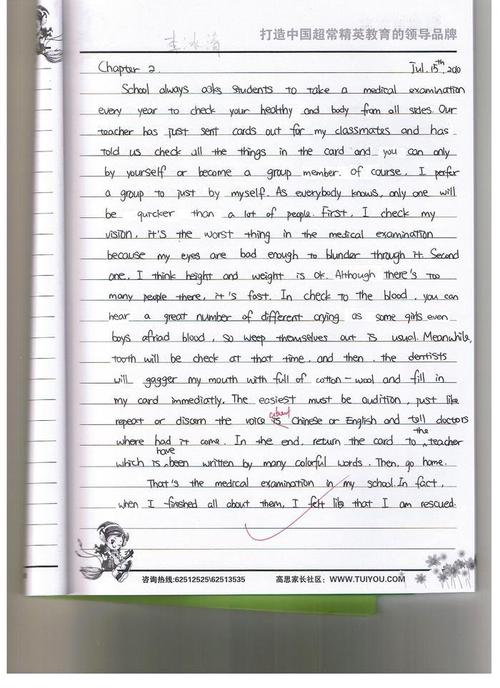 打造中国超常精英教育的领导品牌
李冰清
Chapter 2. Jul. 15th, 2010
School always asks students to take a medical examination
every year to check your healthy and body from all sides. Our
teacher has just sent cards out for my classmates and has
told us check all the things in the card and you can only
by yourself or become a group member. Of course, I perfer
a group to just by myself. As everybody knows, only one will
be quicker than a lot of people. First, I check my
vision, it's the worst thing in the medical examination
because my eyes are bad enough to blunder through it. Second
one, I think height and weight is ok. Although there's too
many people there, it's fast. In check to the blood, you can
hear a great number of different crying as some girls even
boys afriad blood, so weep themselves out is usual. Meanwhile,
tooth will be check at that time, and then, the dentists
will gagger my mouth with full of cotton-wool and fill in
my card immediatly. The easiest must be audition, just like
repeat or discern the voice is Chinese or English and tell doctors
where had it come. In the end, return the card to the teacher
which is have been written by many colorful words. Then, go home.
That's the medical examination in my school. In fact,
when I finished all about them, I felt like that I am rescued.
咨询热线:62512525\62513535 高思家长社区: WWW.TUIYOU.COM